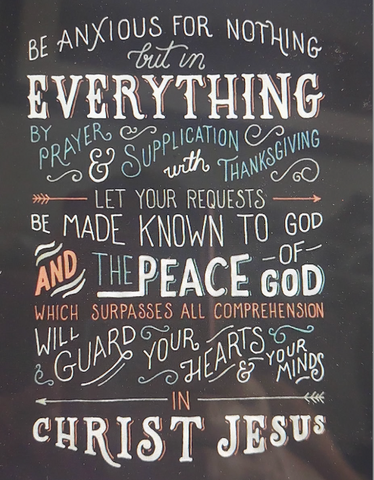 BE ANXIOUS FOR NOTHING
but in
EVERYTHING
BY PRAYER & SUPPLICATION with THANKSGIVING
LET YOUR REQUESTS
BE MADE KNOWN TO GOD
AND THE PEACE OF GOD
WHICH SURPASSES ALL COMPREHENSION
WILL GUARD YOUR HEARTS & YOUR MINDS
IN
CHRIST JESUS